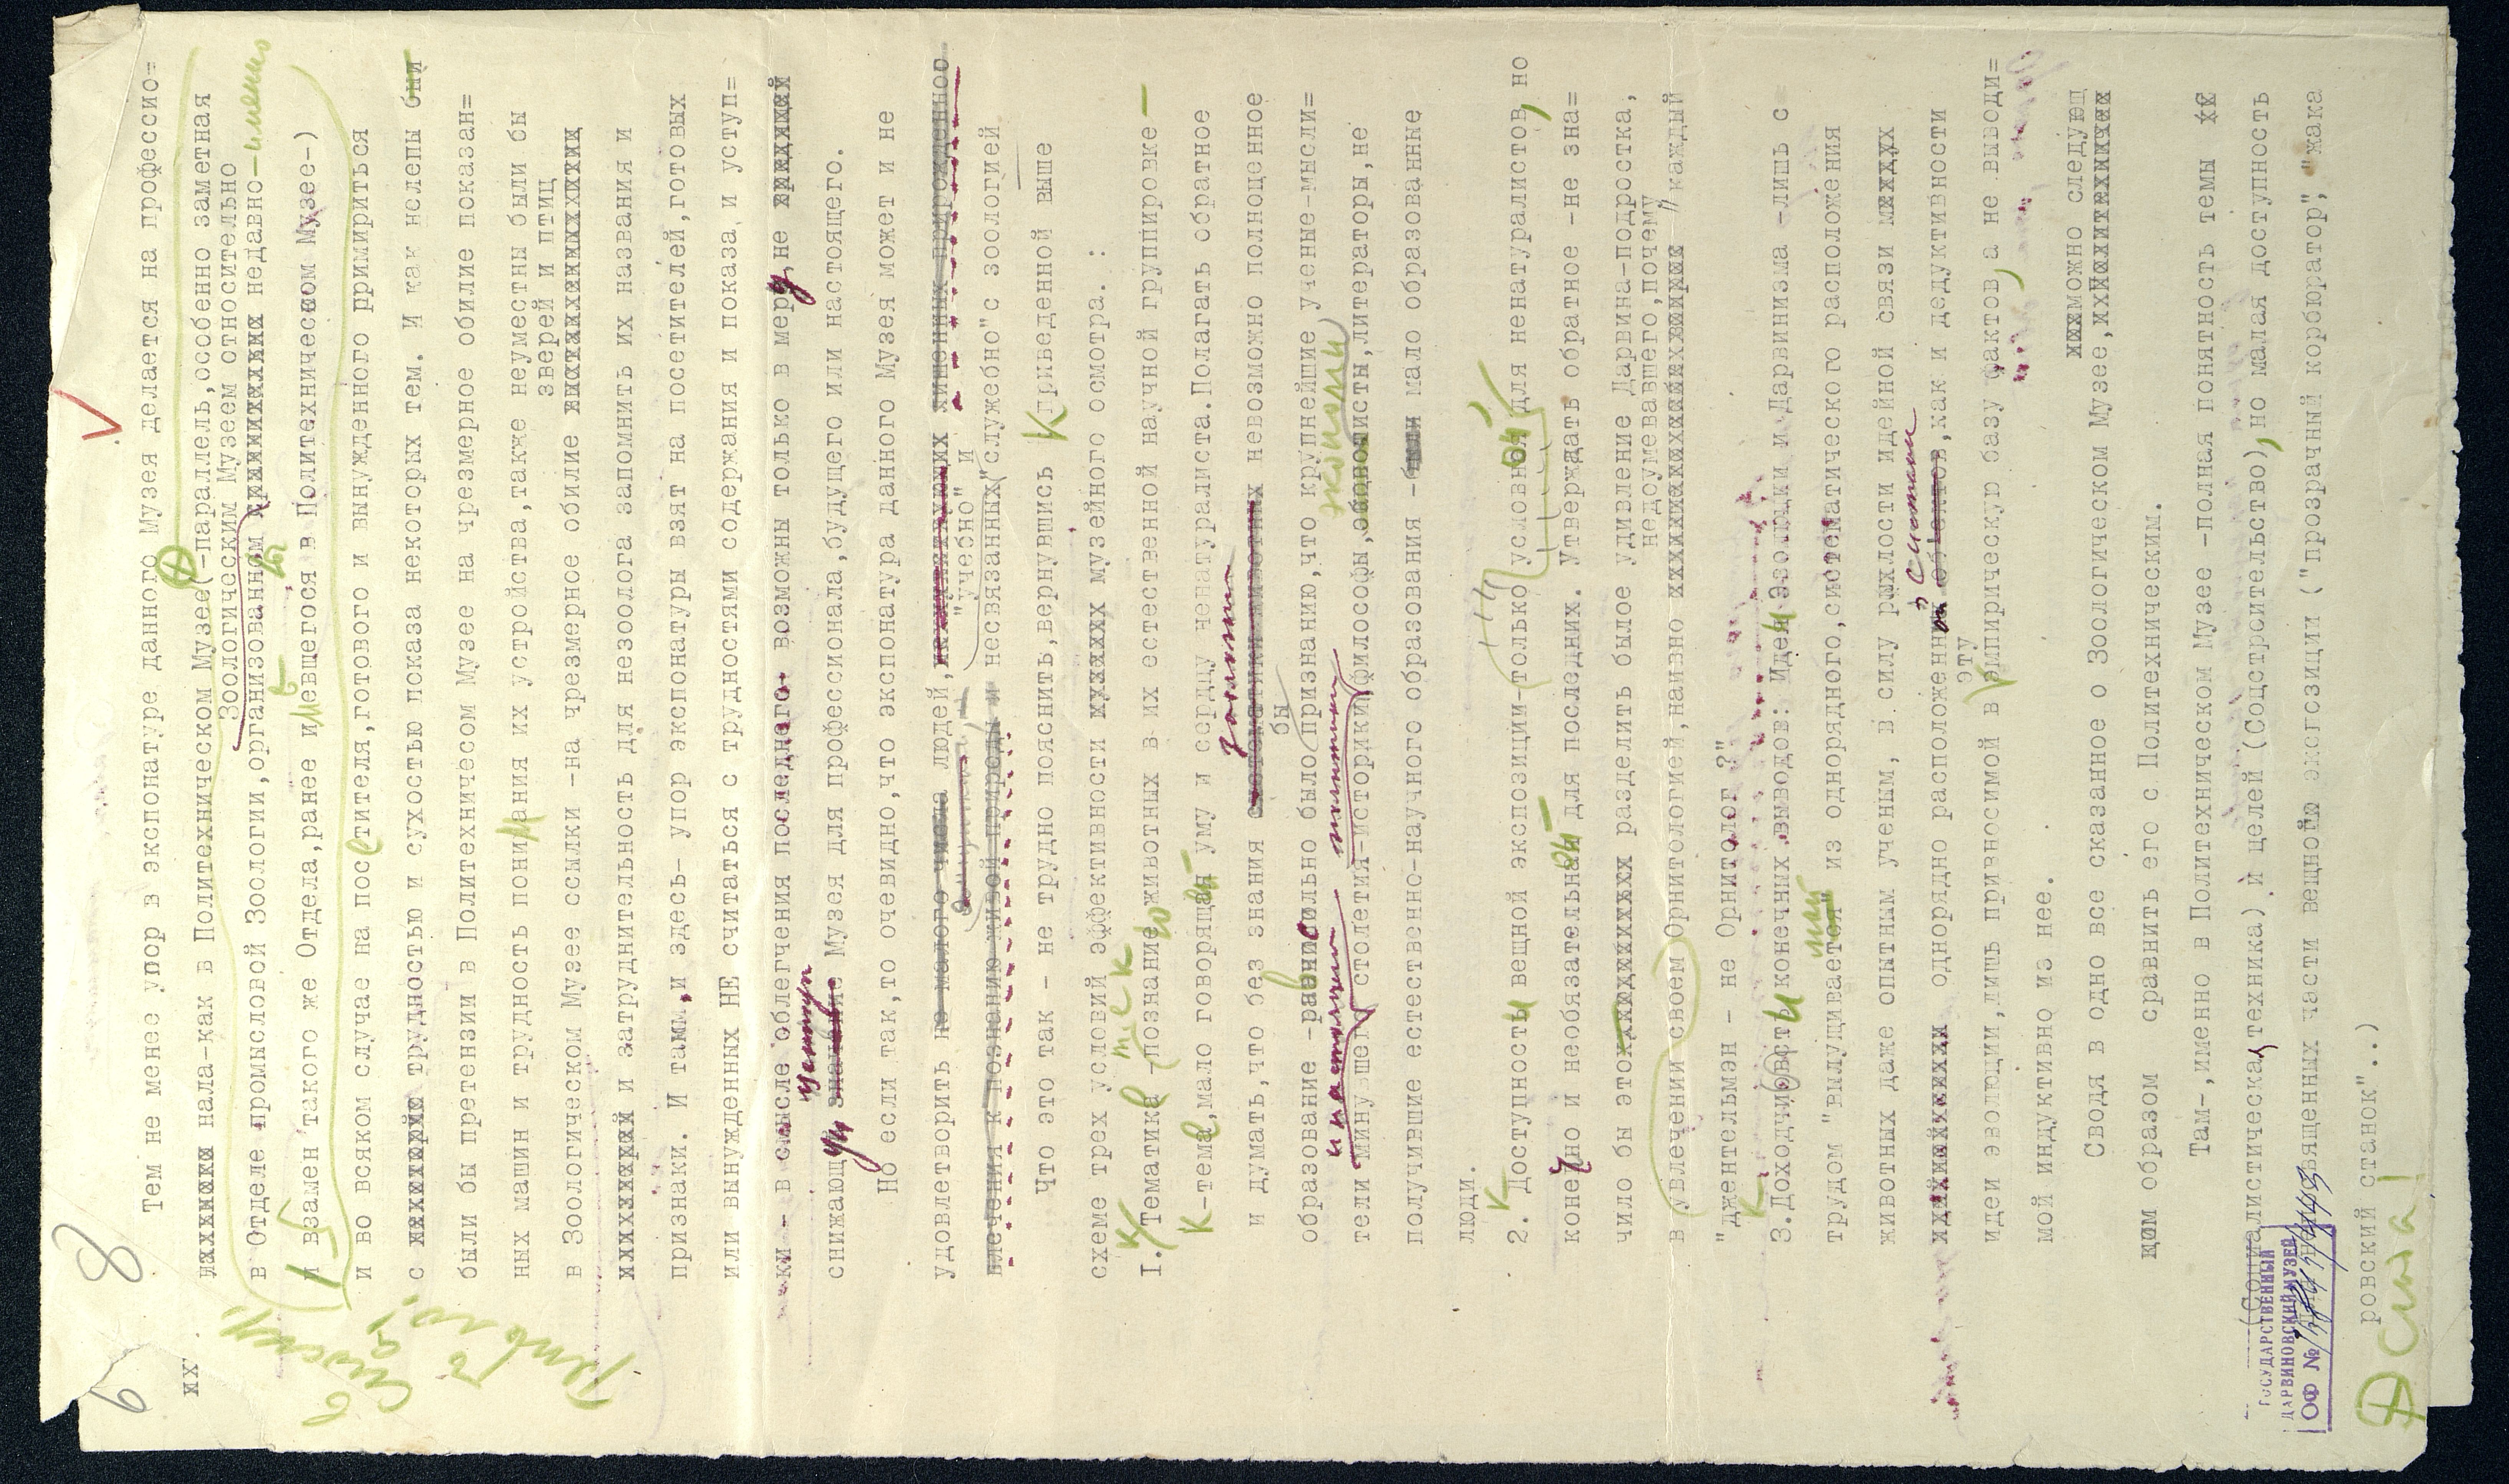 6 8
Тем не менее упор в экспонатуре данного Музея делается на профессио=
их нала-как в Политехническом Музее(-параллель,особенно заметная
Зоологическим Музеем относительно
в Отделе промысловой Зоологии,организованном недавно-именно
и взамен такого же Отдела,ранее имевшегося в Политехническом Музее-)
и во всяком случае на посетителя,готового и вынужденного примириться
с трудностью и сухостью показа некоторых тем. И как нелепы были
были бы претензии в Политехничесом Музее на чрезмерное обилие показан=
ных машин и трудность понимания их устройства,также неуместны были бы
зверей и птиц
в Зоологическом Музее ссылки -на чрезмерное обилие
и затруднительность для незоолога запомнить их названия и
признаки. И там,и здесь- упор экспонатуры взят на посетителей,готовых
или вынужденных НЕ считаться с трудностями содержания и показа, и уступ=
ки - в смысле облегчения последнего- возможны только в меру,не
снижающую Музея для профессионала,будущего или настоящего.
Но если так,то очевидно,что экспонатура данного Музея может и не
удовлетворить не малого числа людей, лишенных прирожденного
"учебно" и
влечения к познанию живой природы и несвязанных "служебно" с зоологией
Что это так - не трудно пояснить,вернувшись к приведенной выше
схеме трех условий эффективности музейного осмотра. :
I. Тематика -познание животных в их естественной научной группировке-
К-тема,мало говорящая уму и сердцу ненатуралиста.Полагать обратное
и думать,что без знания систематики животных невозможно полноценное
бы
образование -равносильно было признанию,что крупнейшие ученые-мысли=
экономи
тели минувшего столетия-историки,философы,экономисты,литераторы,не
получившие естественно-научного образования - мало образованные
люди.
2. Доступность вещной экспозиции-только условная для ненатуралистов, но
конечно и необязательная для последних. Утверждать обратное -не зна=
чило бы это разделить былое удивление Дарвина-подростка,
недоумевавшего,почему
в увлечении своем Орнитологией,наивно " каждый
"джентельмэн - не Орнитолог ?"
3.Доходчивость конечных выводов: Идеи Эволюции и Дарвинизма -лишь с
трудом "вылущивается" из однорядного,систематического расположения
животных даже опытным ученым, в силу рыхлости идейной связи между
однорядно расположенных объектов,как и дедуктивности
эту
идеи эволюции,лишь привносимой в эмпирическую базу фактов, а не выводи=
мой индуктивно из нее.
можно следующ
Сводя в одно все сказанное о Зоологическом Музее,
щим образом сравнить его с Политехническим.
Там-,именно в Политехническом Музее -полная понятность темы
(Социалистическая техника) и целей (Соцстроительство), но малая доступность
священных части вещной экспозиции ("прозрачный корбюратор", "жака
ровский станок"..)
ГОСУДАРСТВЕННЫЙ
ДАРВИНОВСКИЙ МУЗЕЙ
ОФ №
Сюда!